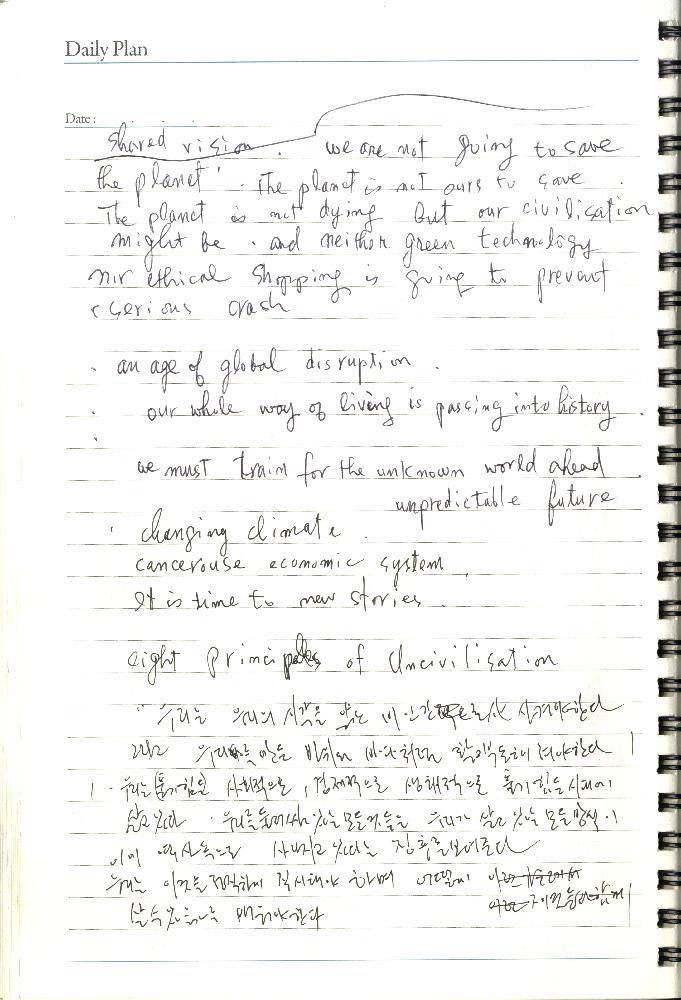 Daily Plan
Date :
shared vision . we are not going to save
the planet' . The planet is not ours to save .
The planet is not dying but our civilisation
might be . and neither green technology
nir ethical shopping is going to prevent
serious crash
. an age of global disruption .
. our whole way of living is passing into history .
we must train for the unknown world ahead .
unpredictable future
. changing climate .
cancerouse economic system .
It is time to new stories .
eight principles of Uncivilisation
" 우리는 우리의 시각을 비인간 사겨야한다
우리는 바위와 바다처럼 한다
우리는 사회적으로 , 경제적으로 생태적으로 시대에
살고 있다 . 우리를 둘러싸고 있는 모든것들은 우리가 살고 있는 모든 방식이
이미 역사속으로 사라지고 있다는 징후를 보여준다
우리는 이것을 정직하게 직시해야 하며 어떻게
살 수 있는가를 배워야한다